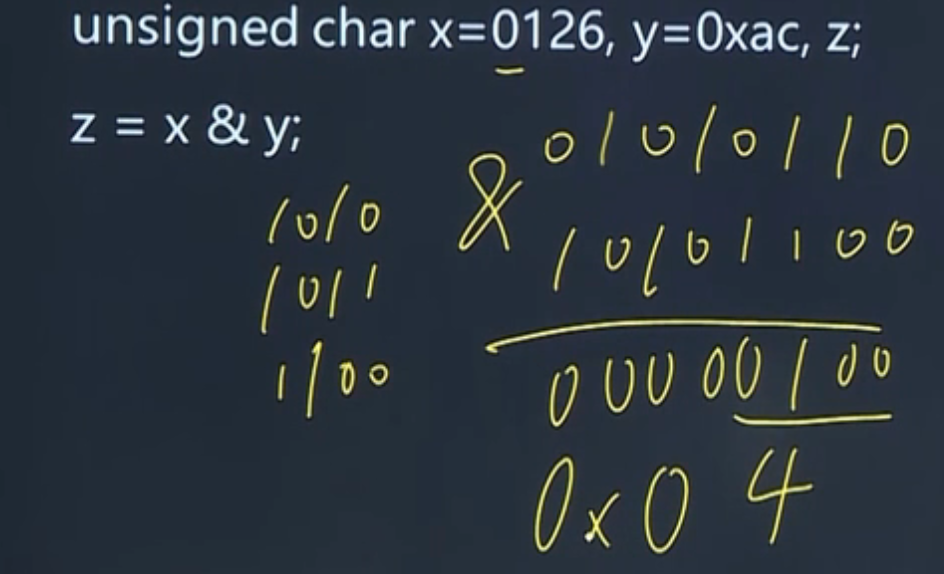 unsigned char x=0126, y=0xac, z;
z = x & y;
01010110
1010
&
10101100
1011
1100
00000100
0x04